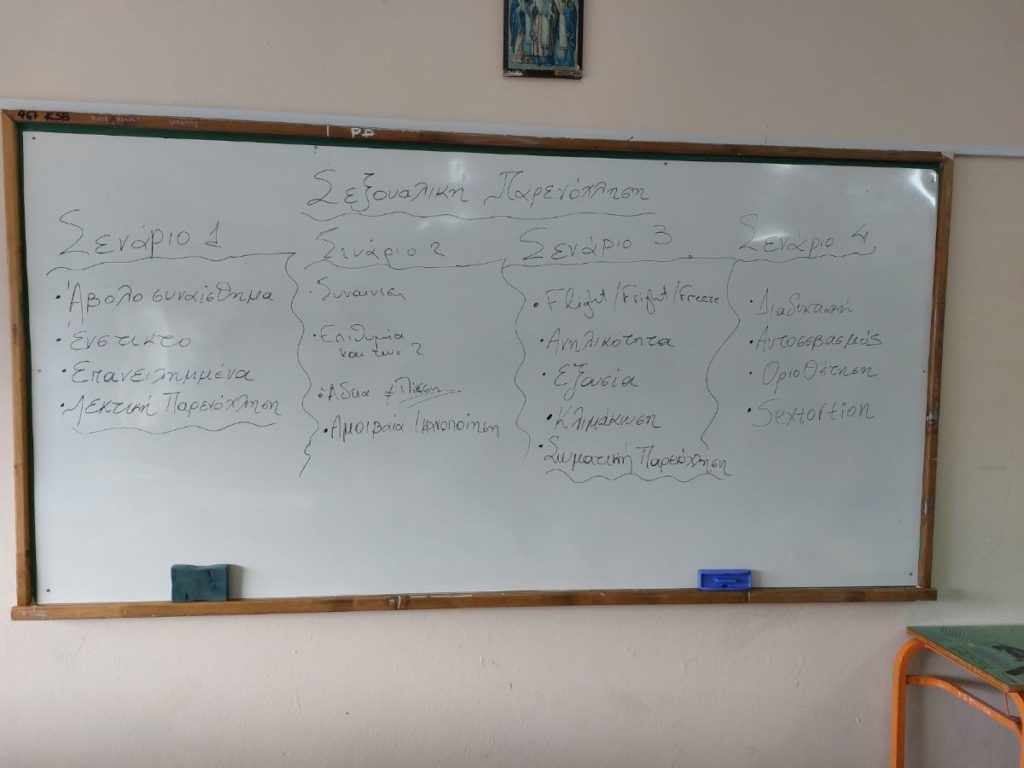 967 KSB
P.P
Σεξουαλική Παρενόχληση
Σενάριο 1
• Άβολο συναίσθημα
• Ένστικτο
• Επανειλημμένα
• Λεκτική Παρενόχληση
Σενάριο 2
• Συναινεση
• Επιθυμία
και των 2
• Άδεια ≠ Πίεση
• Αμοιβαία Ικανοποίηση
Σενάριο 3
• Flight/Fright/Freeze
• Ανηλικότητα
• Εξουσία
• Κλιμάκωση
• Σωματική Παρεόχληση
Σενάριο 4
• Διαδικτυακή
• Αυτοσεβασμός
• Οριοθέτηση
• Sextortion